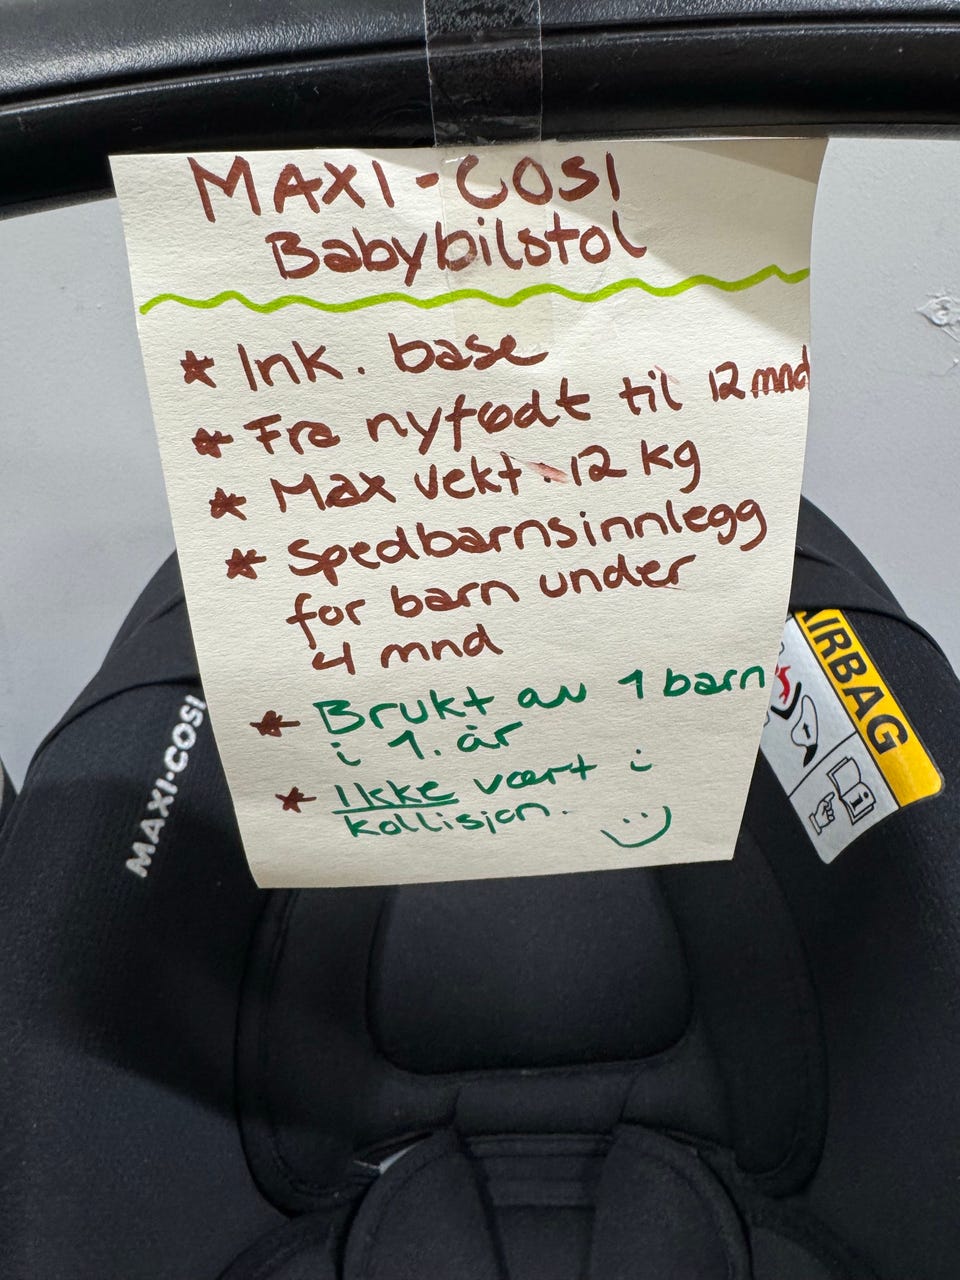 MAXI-COSI
Babybilstol
* Ink. base
* Fra nyfødt til 12 mnd
* Max vekt. 12 kg
* Spedbarnsinnlegg
for barn under
4 mnd
* Brukt av 1 barn
i 1. år
* Ikke vært i
kollisjon.
MAXI-COSI
AIRBAG